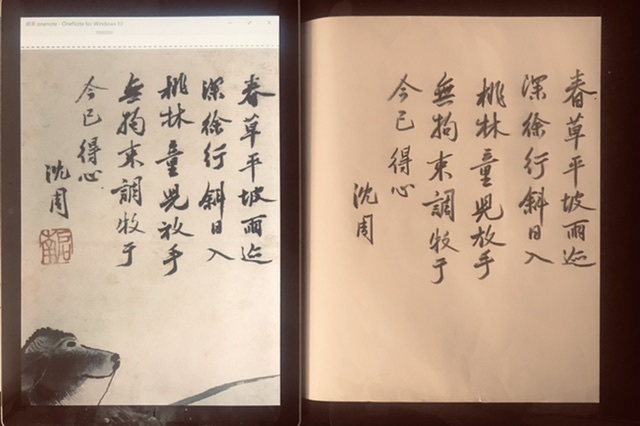 onenote - OneNote for Windows 10
春草平坡雨迹
深徐行斜日入
桃林童兒放手
無拘束調牧于
今已得心
沈周
春草平坡雨迹
深徐行斜日入
桃林童兒放手
無拘束調牧于
今已得心
沈周